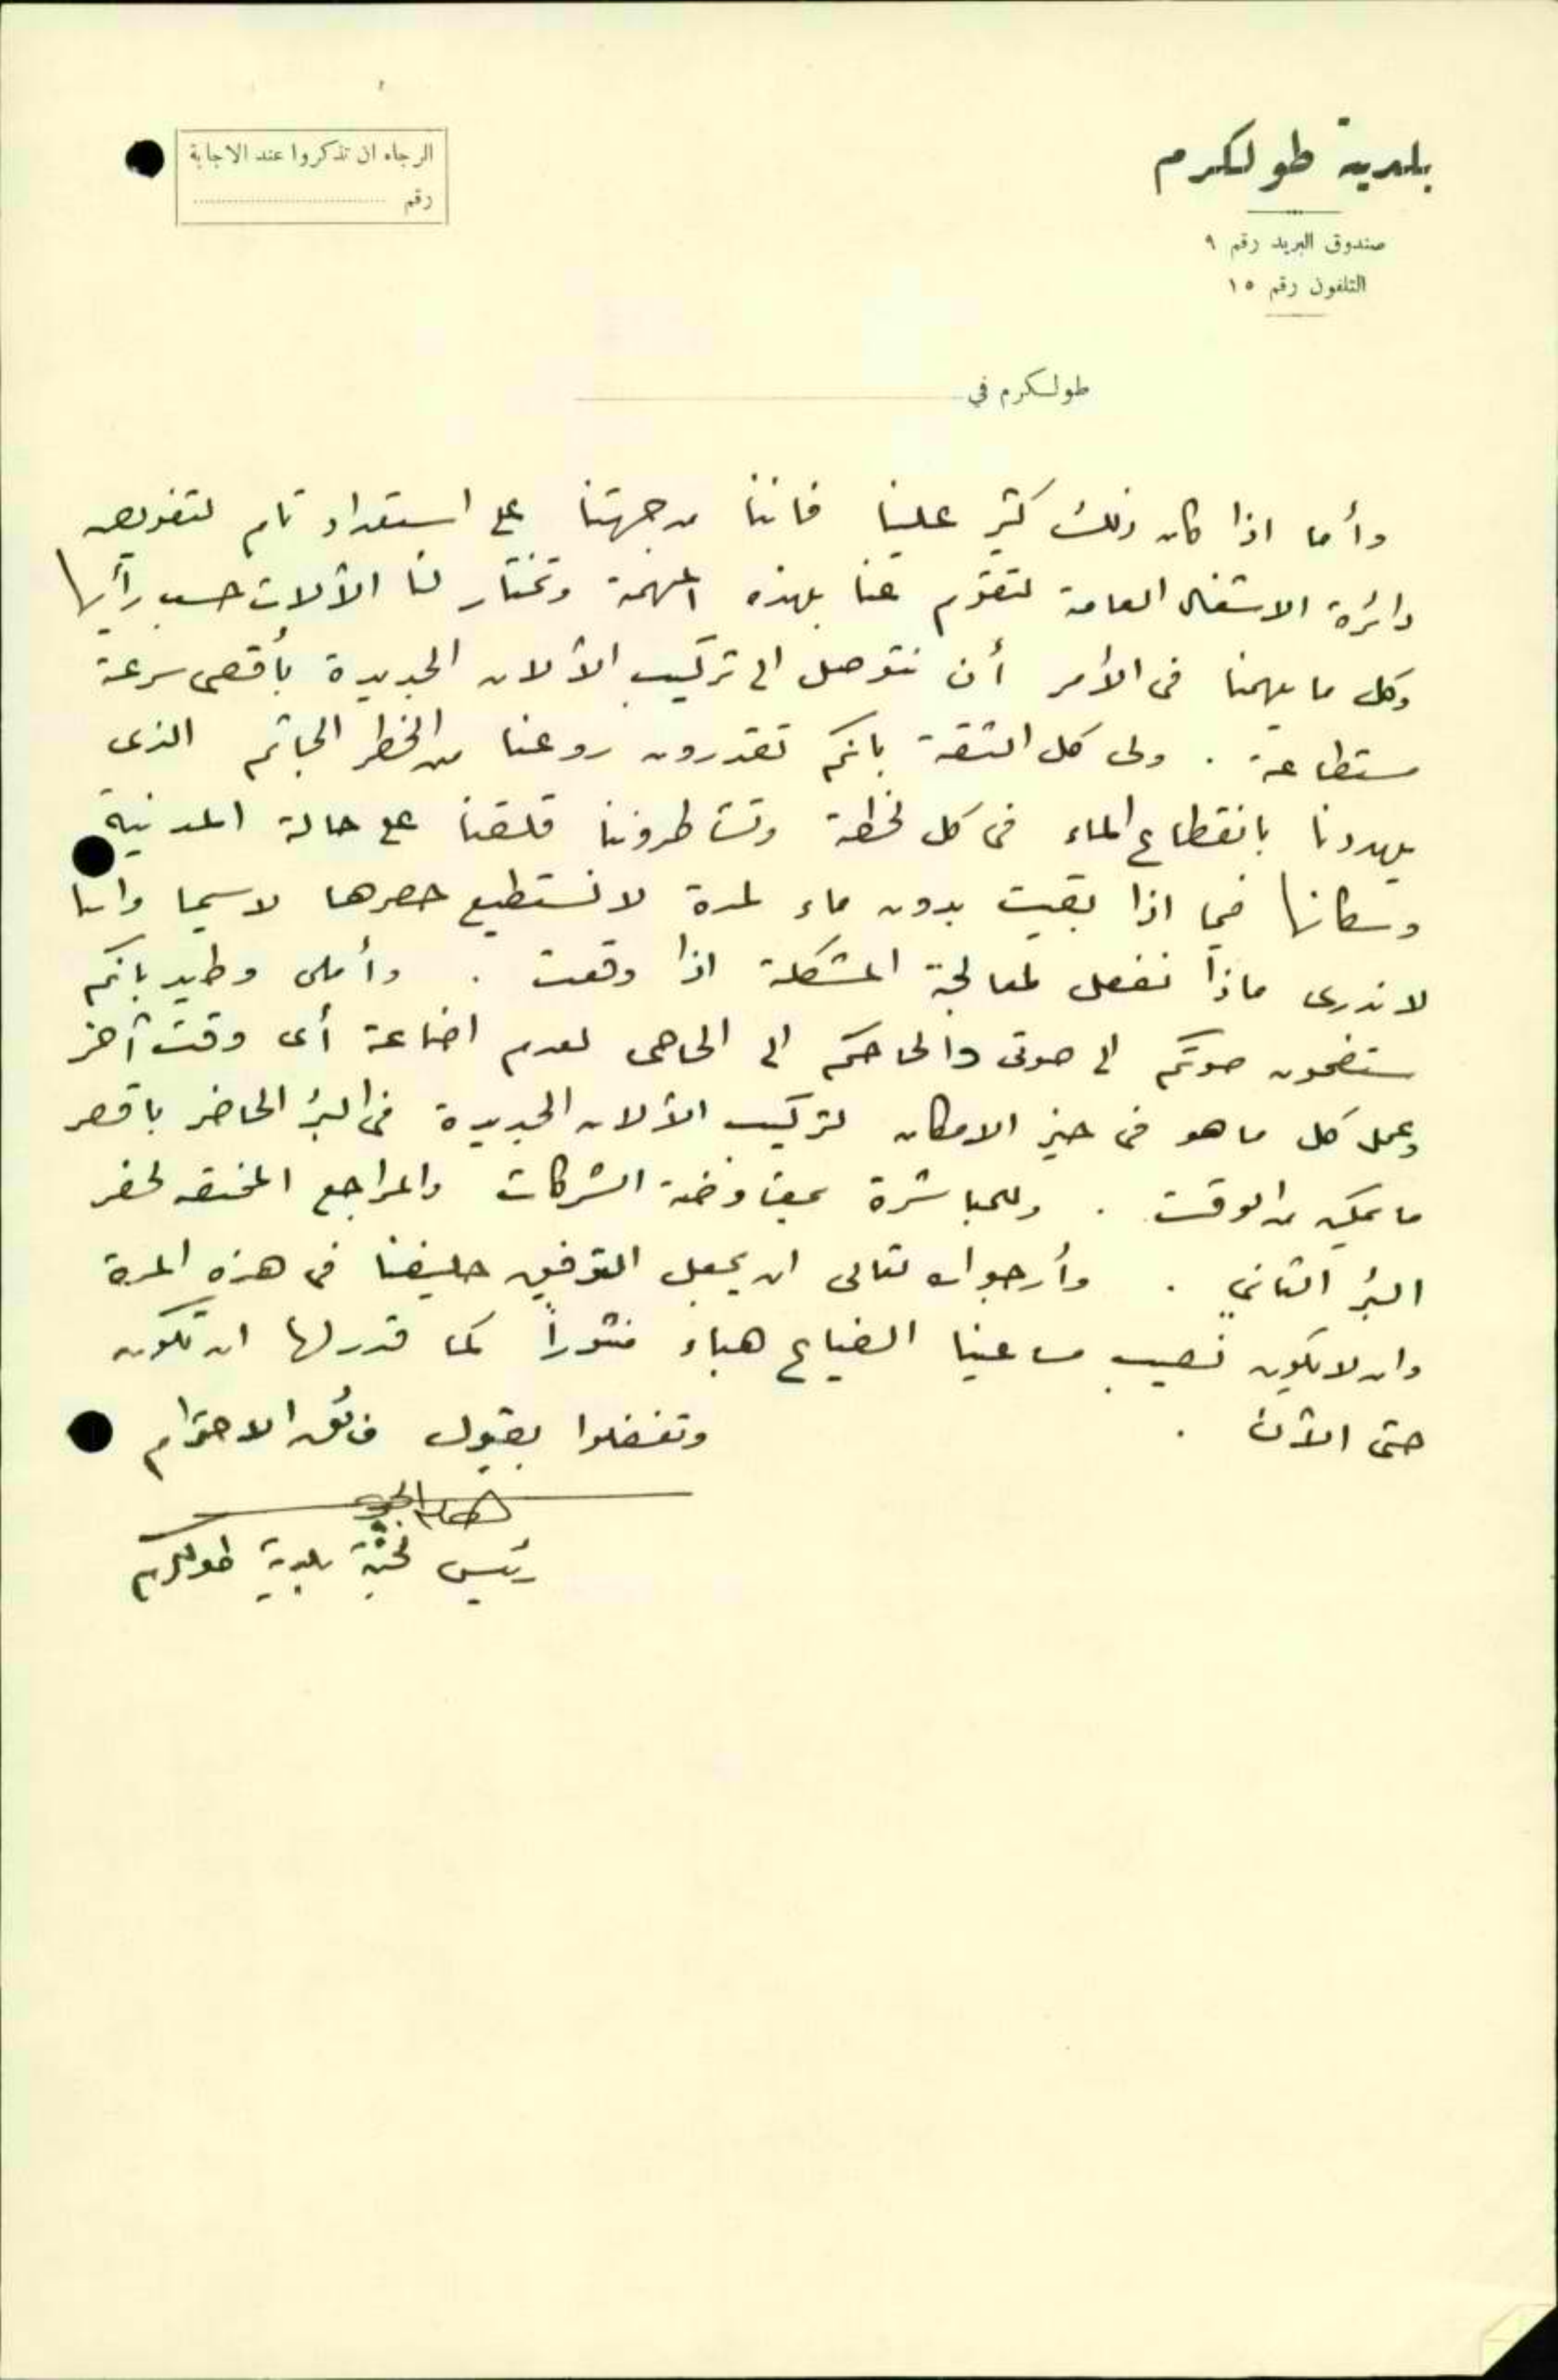 بلدية طولكرم
صندوق البريد رقم ٩
التلفون رقم ١٥
الرجاء ان تذكروا عند الاجابة
رقم
طولكرم في
وأما اذا كان ذلك كثير علينا فاننا من جهتنا على استعداد تام لتفويض
دائرة الاشغال العامة لتقوم عنا بهذه المهمة وتختار لنا الآلات حسب رأيها
وكل ما يهمنا فى الأمر أن نتوصل الى تركيب الآلات الجديدة بأقصى سرعة
مستطاعة . ولى كل الثقة بانكم تقدرون روعنا من الخطر الجاثم الذى
يهددنا بانقطاع الماء فى كل لحظة وتشاطروننا قلقنا على حالة المدنية
وسكانها فيما اذا بقيت بدون ماء لمدة لا نستطيع حصرها لاسيما واننا
لا ندرى ماذا نفعل لمعالجة المشكلة اذا وقعت . وأملى وطيد بانكم
ستضمون صوتكم الى صوتى والحاحكم الى الحاحى لعدم اضاعة أى وقت آخر
وعمل كل ما هو فى حيز الامكان لتركيب الآلات الجديدة فى البئر الحاضر باقصر
ما يمكن من الوقت . وللمباشرة بمفاوضة الشركات والمراجع المختصه لحفر
البئر الثاني . وأرجو الله تعالى ان يجعل التوفيق حليفنا فى هذه المرة
وان لا يكون نصيب مساعينا الضياع هباء منثوراً كما قدر لها ان تكون
حتى الآن .
وتفضلوا بقبول فائق الاحترام
رئيس لجنة بلدية طولكرم